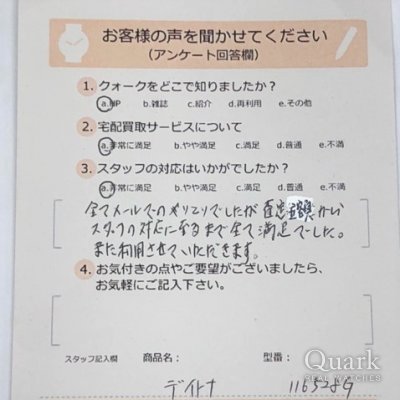 お客様の声を聞かせてください
(アンケート回答欄)
1. クォークをどこで知りましたか?
a.HP b.雑誌 c.紹介 d.再利用 e.その他
2. 宅配買取サービスについて
a.非常に満足 b.やや満足 c.満足 d.普通 e.不満
3. スタッフの対応はいかがでしたか?
a.非常に満足 b.やや満足 c.満足 d.普通 e.不満
全てメールでのやりとりでしたが 査定額から
スタッフの対応に至るまで全て満足でした。
また利用させていただきます。
4. お気付きの点やご要望がございましたら、
お気軽にご記入下さい。
スタッフ記入欄 商品名: 型番:
デイトナ 116528G
Quark
REAL WATCHES